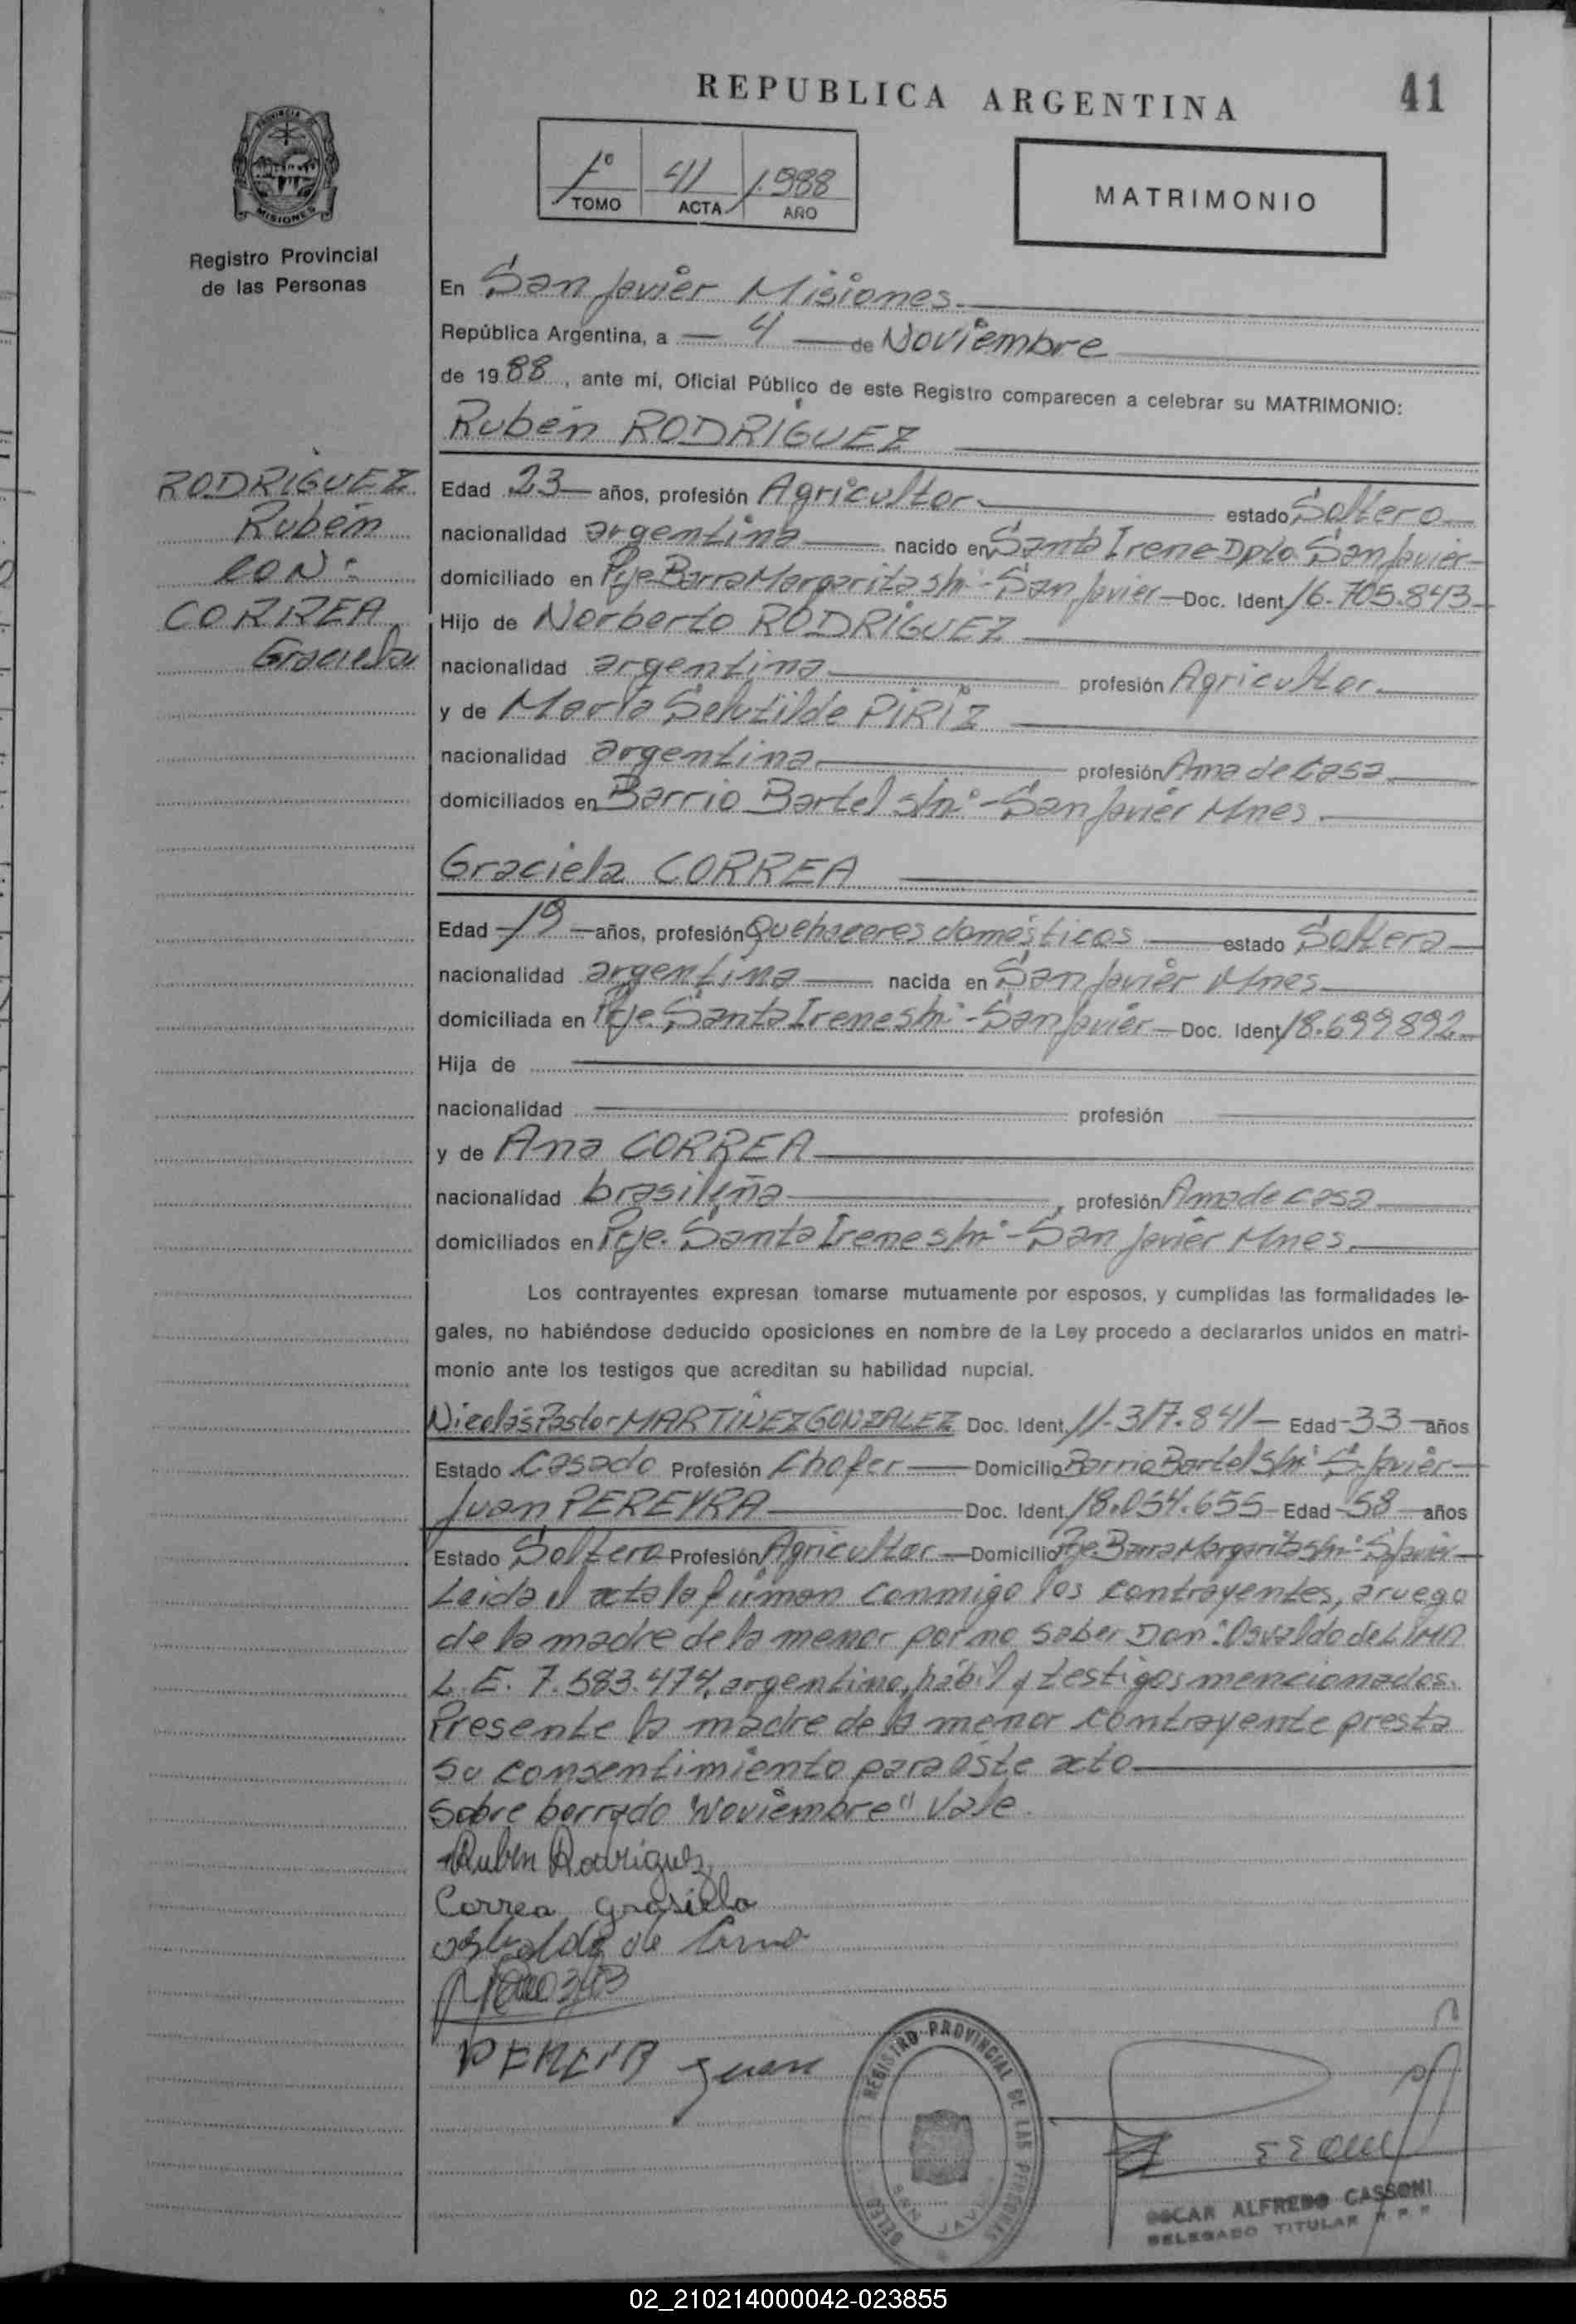 REPUBLICA ARGENTINA
41
1º 41 1.988
TOMO ACTA AÑO
MATRIMONIO
PROVINCIA
MISIONES
Registro Provincial
de las Personas
RODRIGUEZ
Rubén
CON:
CORREA
Graciela
En San Javier Misiones
República Argentina, a 4 de Noviembre
de 1988, ante mí, Oficial Público de este Registro comparecen a celebrar su MATRIMONIO:
Rubén RODRIGUEZ
Edad 23 años, profesión Agricultor estado Soltero
nacionalidad argentina nacido en Santa Irene Dpto. San Javier
domiciliado en Pje. Barra Margarita s/nº - San Javier Doc. Ident. 16.705.843
Hijo de Norberto RODRIGUEZ
nacionalidad argentina profesión Agricultor
y de María Selutilde PIRIZ
nacionalidad argentina profesión Ama de Casa
domiciliados en Barrio Bartel s/nº - San Javier Mnes.
Graciela CORREA
Edad 19 años, profesión Quehaceres domésticos estado Soltera
nacionalidad argentina nacida en San Javier Mnes.
domiciliada en Pje. Santa Irene s/nº - San Javier Doc. Ident. 18.699892
Hija de
nacionalidad profesión
y de Ana CORREA
nacionalidad brasileña profesión Ama de casa
domiciliados en Pje. Santa Irene s/nº - San Javier Mnes.
Los contrayentes expresan tomarse mutuamente por esposos, y cumplidas las formalidades le-
gales, no habiéndose deducido oposiciones en nombre de la Ley procedo a declararlos unidos en matri-
monio ante los testigos que acreditan su habilidad nupcial.
Nicolás Pastor MARTINEZ GONZALEZ Doc. Ident. 11.317.841 Edad 33 años
Estado Casado Profesión Chofer Domicilio Barrio Bartel s/nº S. Javier
Juan PEREYRA Doc. Ident. 18.054.655 Edad 58 años
Estado Soltero Profesión Agricultor Domicilio Pje. Barra Margarita s/nº S. Javier
Leida el acta la firman conmigo los contrayentes, a ruego
de la madre de la menor por no saber Don: Osvaldo de LIMA
L.E. 7.583.474, argentino, hábil y testigos mencionados.
Presente la madre de la menor contrayente presta
su consentimiento para éste acto
Sobre borrado "Noviembre" Vale.
Ruben Rodriguez
Correa grasiela
osbaldo de lima
Juan
REGISTRO PROVINCIAL DE LAS PERSONAS
SAN JAVIER
OSCAR ALFREDO CASSONI
DELEGADO TITULAR R. P. P.
02_210214000042-023855